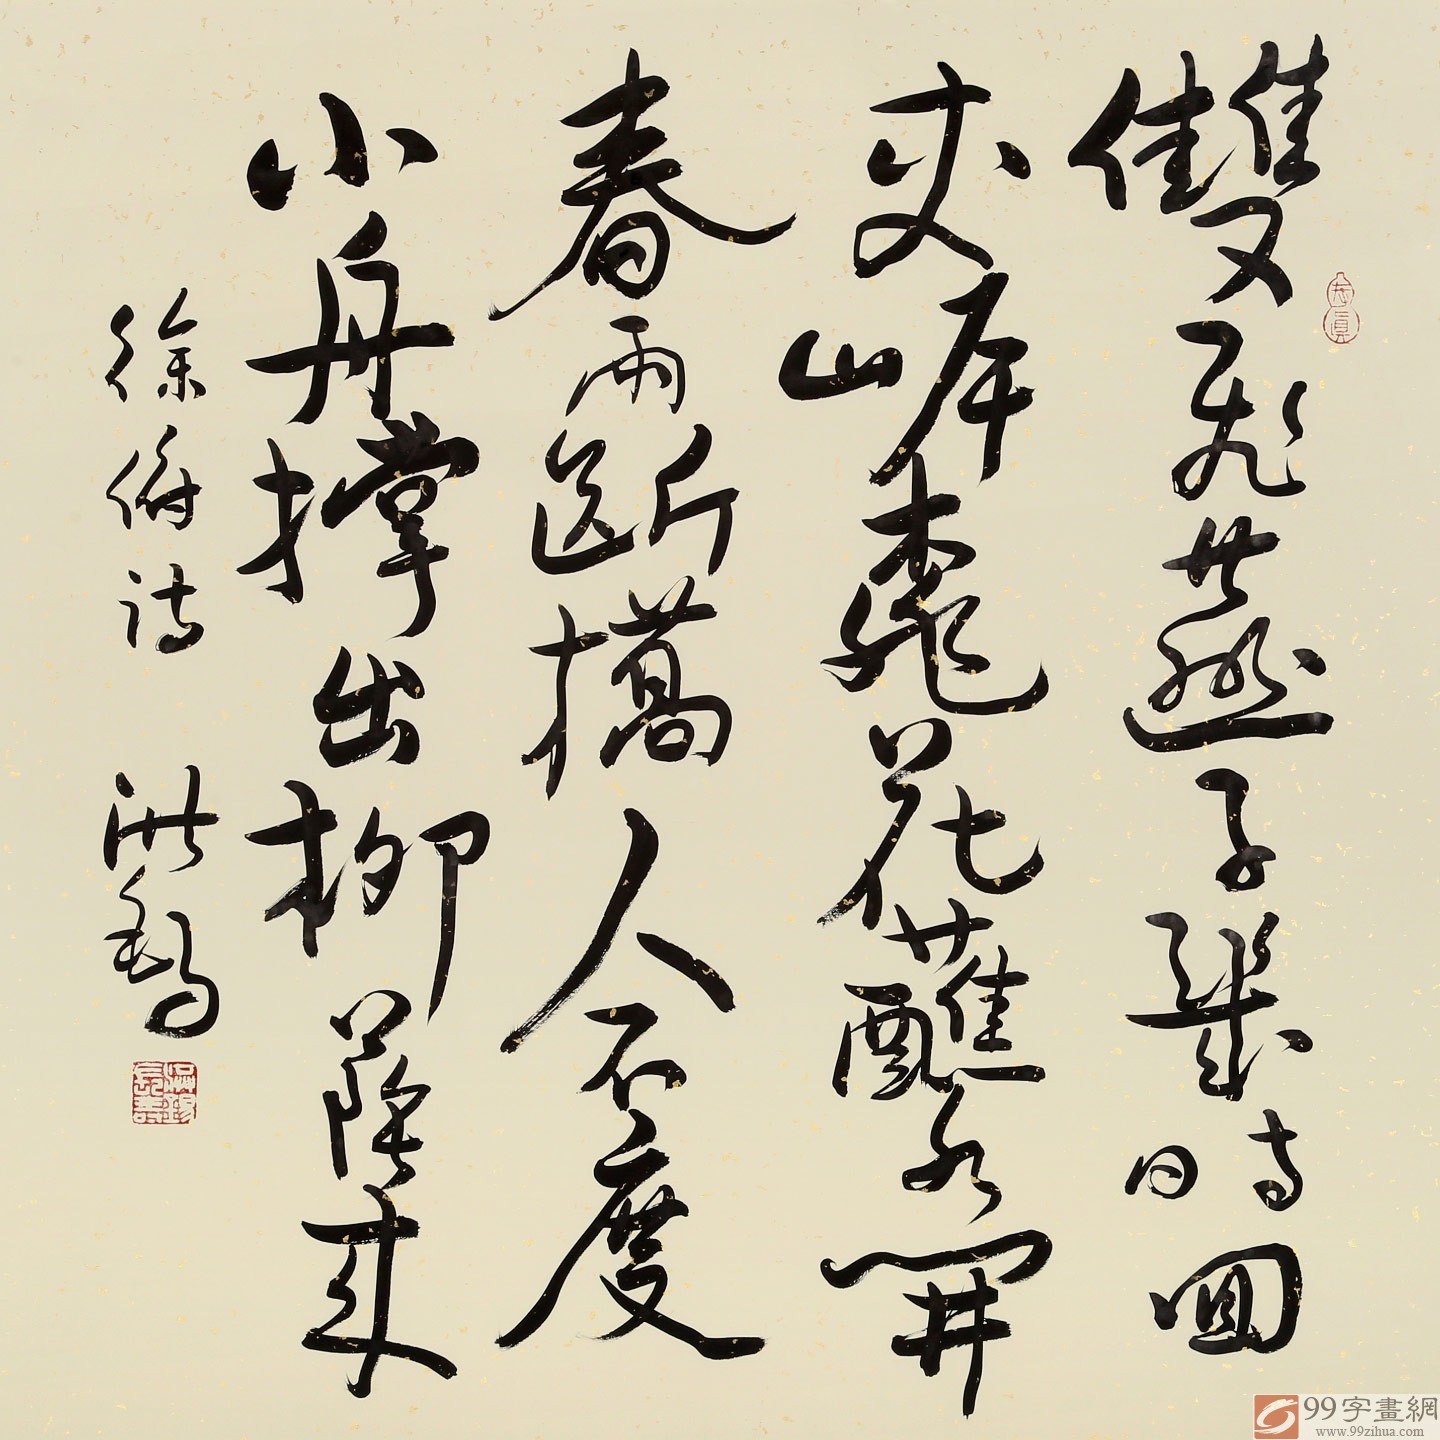 雙飛燕子幾時回
夾岸桃花蘸水開
春雨斷橋人不度
小舟撑出柳蔭来
徐俯詩 洪
99字畫網
www.99zihua.com